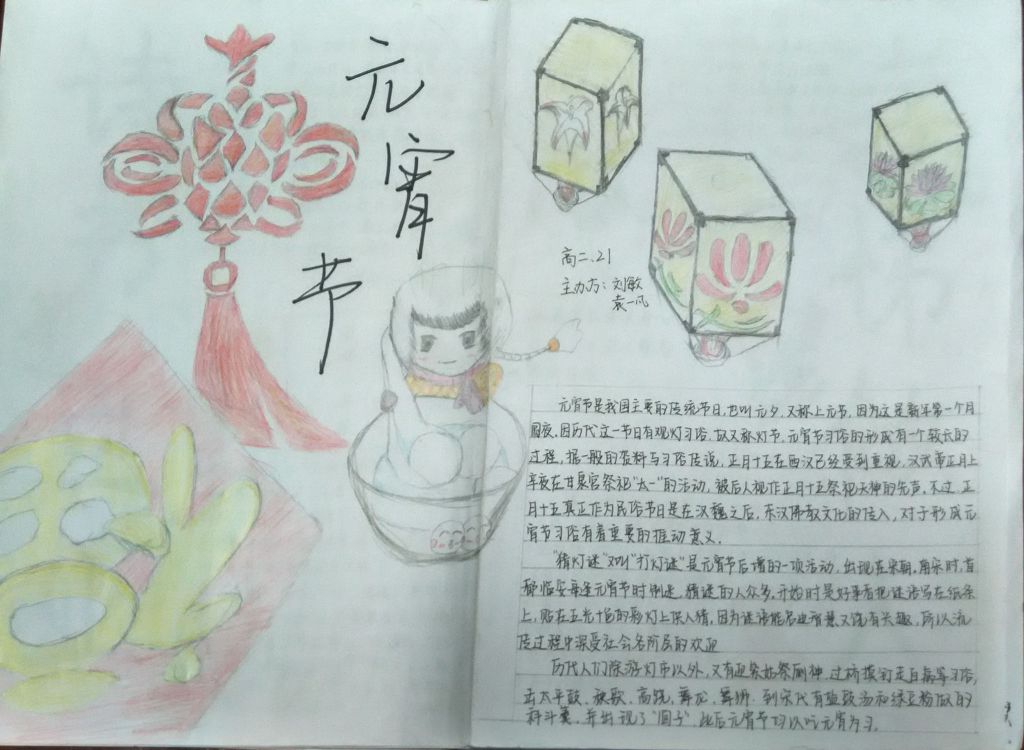 元宵节
高二.21
主办方：刘敏
袁一凡
元宵节是我国主要的传统节日，也叫元夕，又称上元节，因为这是新年第一个月
圆夜，因历代这一节日有观灯习俗，故又称灯节。元宵节习俗的形成有一个较长的
过程，据一般的资料与习俗传说，正月十五在西汉已经受到重视，汉武帝正月上
辛夜在甘泉宫祭祀"太一"的活动，被后人视作正月十五祭祀天神的先声。不过，正
月十五真正作为民俗节日是在汉魏之后，东汉佛教文化的传入，对于形成元
宵节习俗有着重要的推动意义。
"猜灯谜"又叫"打灯谜"是元宵节后增的一项活动，出现在宋朝。南宋时，首
都临安每逢元宵节时制迷，猜谜的人众多。开始时是好事者把谜语写在纸条
上，贴在五光十色的彩灯上供人猜，因为谜语能启迪智慧又饶有兴趣，所以流
传过程中深受社会各阶层的欢迎
历代人们除游灯市以外，又有迎紫姑祭厕神、过桥摸钉走百病等习俗，
击太平鼓、秧歌、高跷、舞龙、舞狮。到宋代有盐豉汤和绿豆粉做的
科斗羹，并出现了"圆子"此后元宵节均以吃元宵为习。